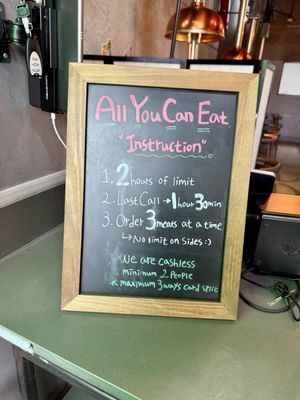 All You Can Eat
"Instruction"
1. 2 hours of limit
2. Last Call → 1 hour 30min
3. Order 3 meats at a time
↳ No limit on Sides :)
We are cashless
. minimum 2 People
* maximum 3 ways card split